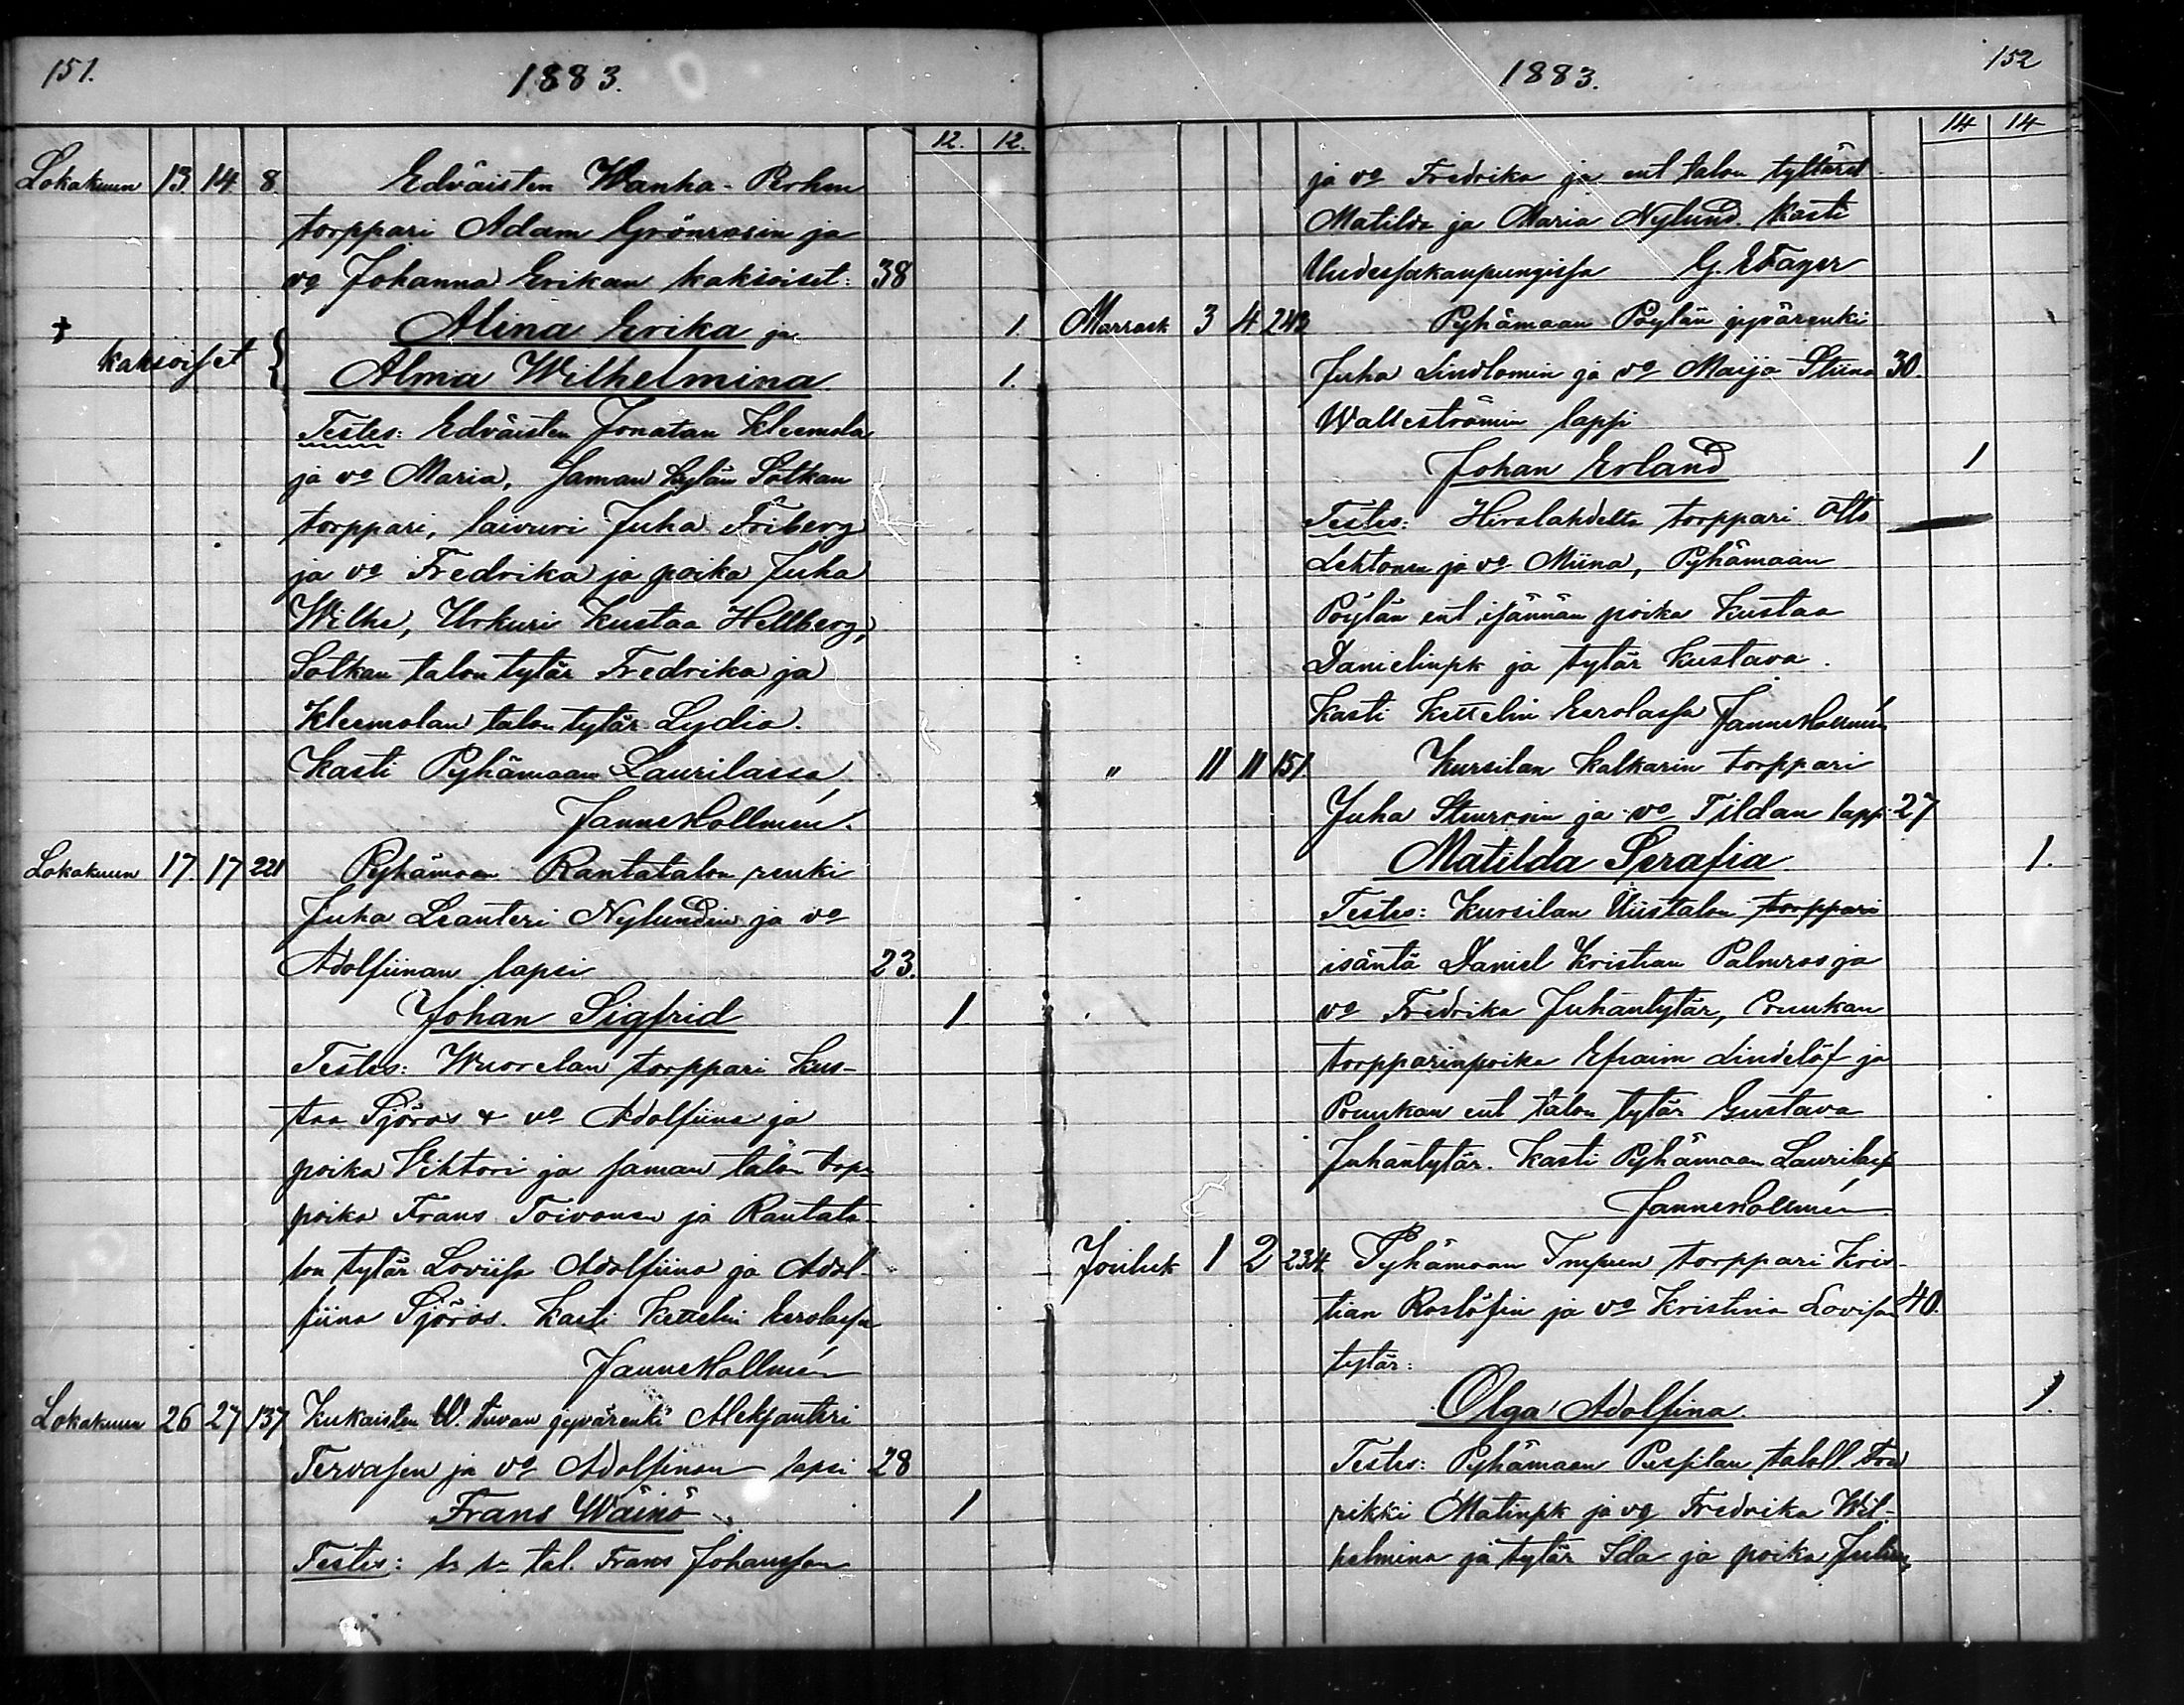 151.
1883.
12. 12.
Lokakuun 13. 14 8. Edväisten Wanha-Perhen
torppari Adam Grönroosin ja
vo Johanna Erikan kaksoiset: 38
† Alina Erika ja 1.
kaksoiset { Alma Wilhelmina 1.
Testes: Edväisten Jonatan Kleemola
ja vo Maria, saman kylän Sotkan
torppari, laivuri Juha Friberg
ja vo Fredrika ja poika Juha
Wilhe, Urkuri Kustaa Hellberg,
Sotkan talon tytär Fredrika ja
Kleemolan talon tytär Lydia.
Kasti Pyhämaan Laurilassa,
Janne Hollmén.
Lokakuun 17. 17 221 Pyhämaan Rantatalon renki
Juha Leanteri Nylundin ja vo
Adolfiinan lapsi 23.
Johan Sigfrid 1
Testes: Wuorelan torppari Kus-
taa Sjöros & vo Adolfiina ja
poika Viktori ja saman talon torp-
poika Frans Toivonen ja Rantata-
lon tytär Loviisa Adolfiina ja Adol-
fiina Sjöros. Kasti Kettelin Eerolassa
Janne Hollmén
Lokakuun 26 27 137 Kukaisten W. tuvan jyvärenki Aleksanteri
Tervasen ja vo Adolfinan lapsi 28
Frans Wäinö 1
Testes: tal. Frans Johansson
1883.
152
14 14
ja vo Fredrika ja ent talon tyttäret
Matilda ja Maria Nylund. Kasti
Uudessakaupungissa G. E Fager
Marrask 3 4 242 Pyhämaan Pöylän jyvärenki
Juha Lindlomin ja vo Maija Stiina 30.
Walleströmin lapsi
Johan Erland 1
Testes: Hirslahdelta torppari Otto
Lehtonen ja vo Miina, Pyhämaan
Pöylän ent isännän poika Kustaa
Danielinpk ja tytär Kustava.
Kasti Kettelin Eerolassa Janne Hollmén
" 11 11 151. Kursilan Kalkarin torppari
Juha Stenrosin ja vo Tildan lapsi 27
Matilda Serafia 1.
Testes: Kursilan Uustalon torppari
isäntä Daniel Kristian Palmros ja
vo Fredrika Juhantytär, Pruukan
torpparinpoika Efraim Lindelöf ja
Pruukan ent talon tytär Gustava
Juhantytär. Kasti Pyhämaan Laurilass
Janne Hollmén
Jouluk 1 2 234. Pyhämaan Impun torppari Kris-
tian Roslöfin ja vo Kristina Lovisan 40.
tytär:
Olga Adolfina. 1.
Testes: Pyhämaan talll.
rikki Matinpk ja vo Fredrika Wil-
helmina ja tytär Ida ja poika